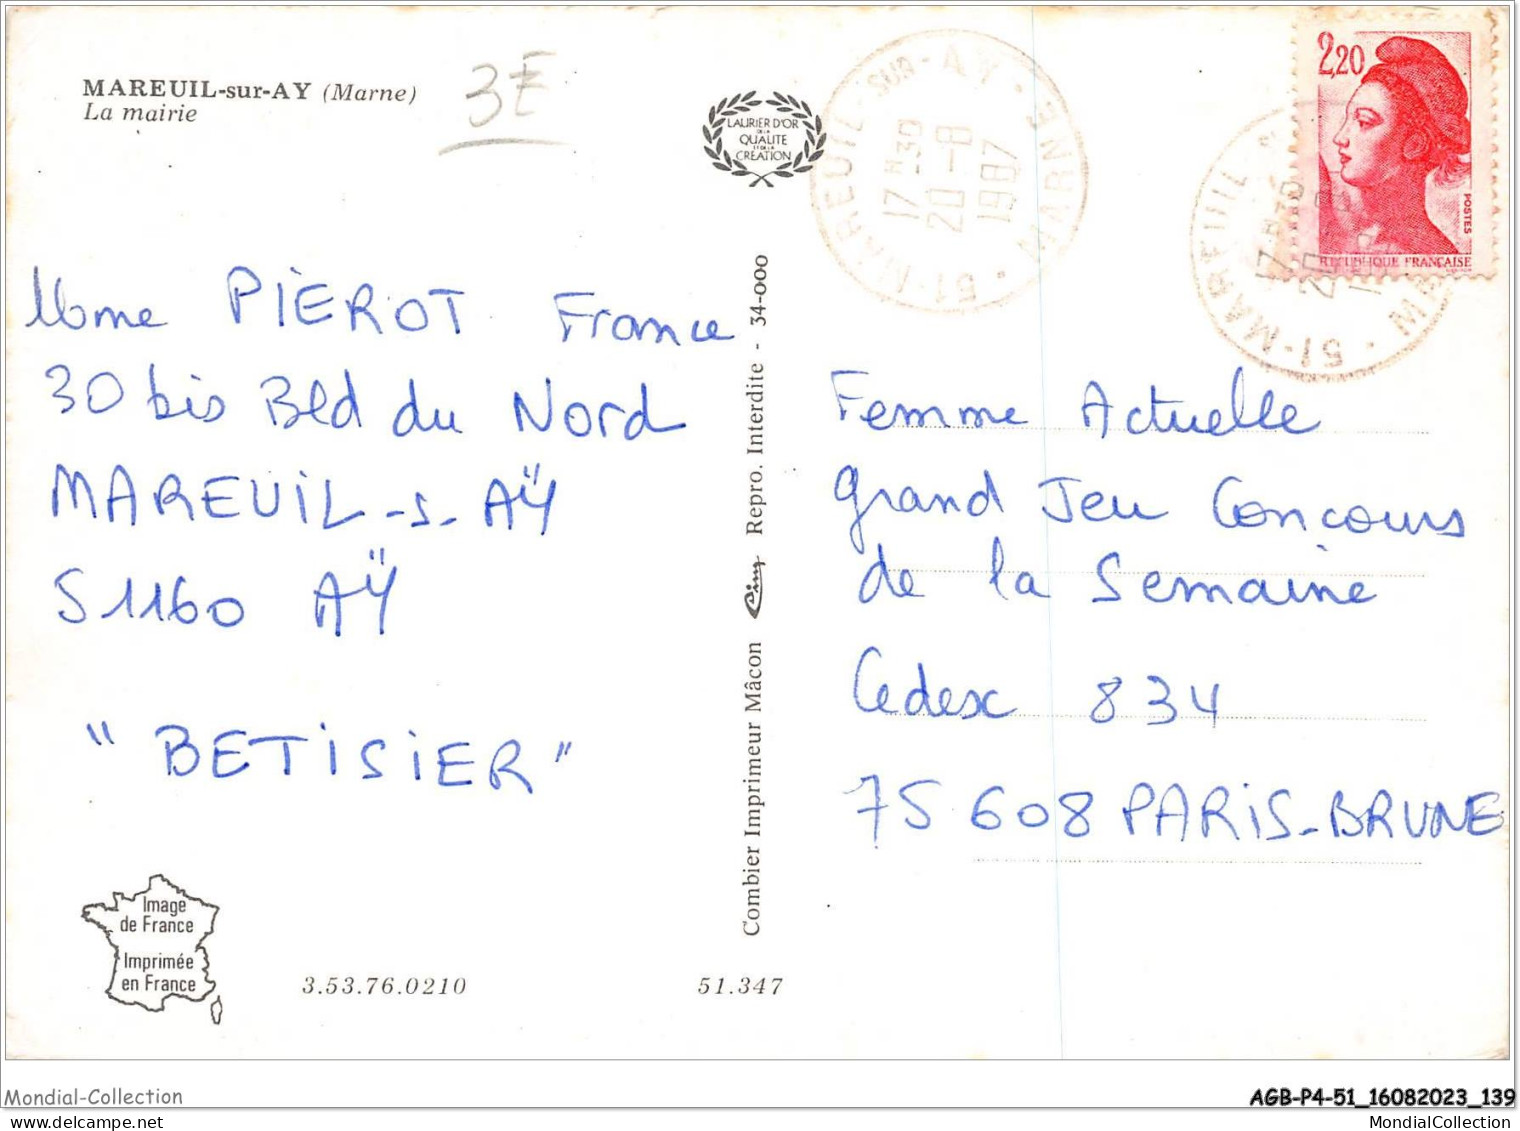 MAREUIL-sur-AY (Marne)
La mairie
3E
LAURIER D'OR
DE LA
QUALITE
ET DE LA
CREATION
51-MAREUIL-SUR-AY · MARNE
17H30
20-8
1987
2,20
POSTES
REPUBLIQUE FRANÇAISE
51-MAREUIL
17H30
20
Mme PIEROT France
30 bis Bld du Nord
MAREUIL-s-AŸ
51160 AŸ
"BETISIER"
Combier Imprimeur Mâcon Cim Repro. Interdite - 34-000
Femme Actuelle
Grand Jeu Concours
de la Semaine
Cedex 834
75608 PARIS-BRUNE
Image
de France
Imprimée
en France
3.53.76.0210
51.347
Mondial-Collection
AGB-P4-51_16082023_139
MondialCollection